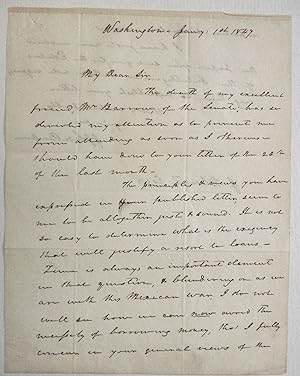 Washington Jany. 1st 1847.
My Dear Sir,
The death of my excellent
friend Mr Barrow of the Senate, has so
diverted my attention as to prevent me
from attending as soon as I otherwise
should have done to your letter of the 26th
of the last month.
The principles & views you have
expressed in your published letter seem to
me to be altogether just & sound. It is not
so easy to determine what is the exigency
that will justify a resort to loans—
Time is always an important element
in that question, & blundering on as we
are with this Mexican war I do not
well see how we can now avoid the
necessity of borrowing money, tho' I fully
concur in your general views of the